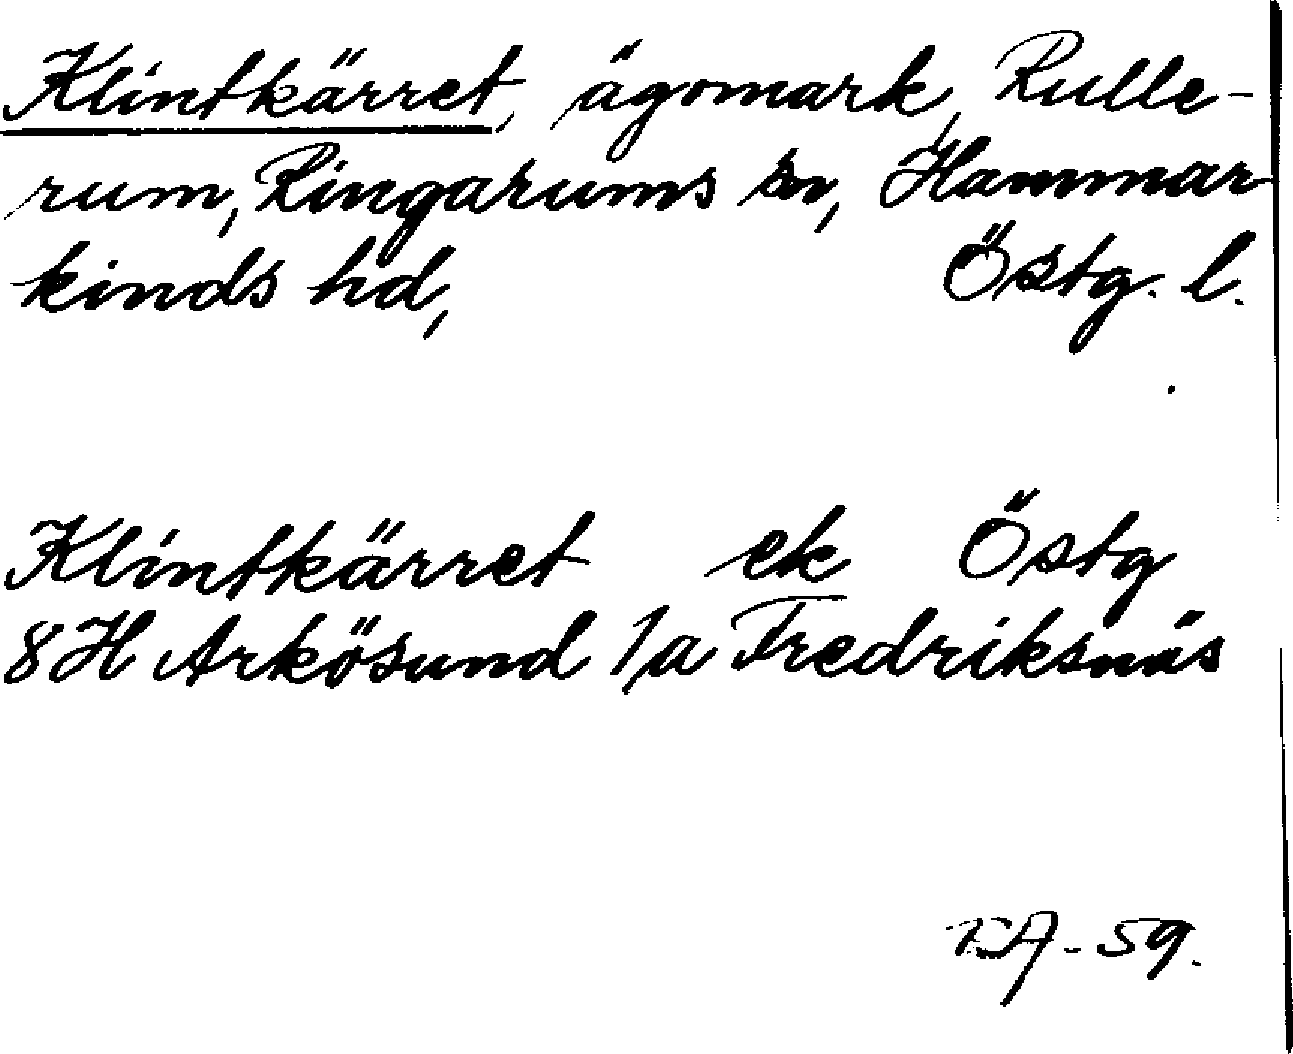 Klintkärret, ägomark, Rulle-
rum, Ringarums sn, Hammar-
kinds hd, Östg. l.
Klintkärret ek Östg
8H Arkösund 1/a Fredriksnäs
EA-59.